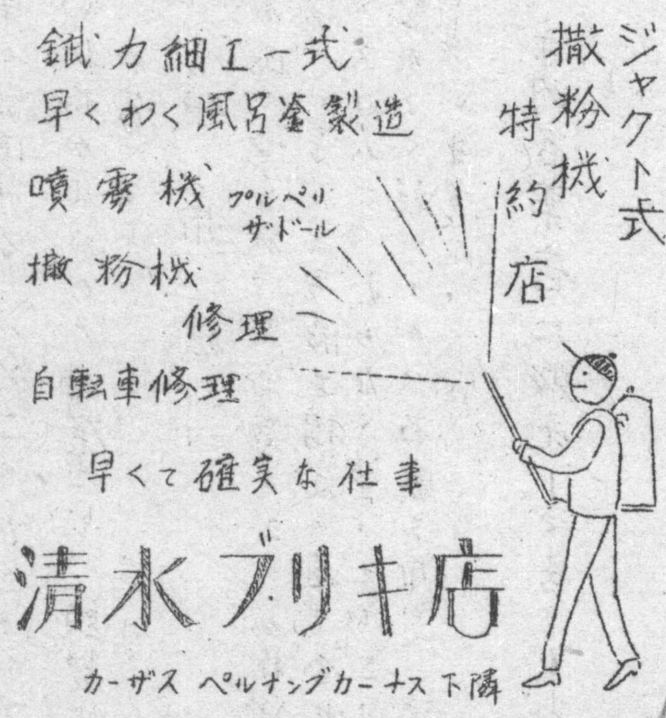 ジャクト式
撒粉機
特約店
錻力細工一式
早くわく風呂釜製造
噴霧機 プルベリザドール
撒粉機
修理
自転車修理
早くて確実な仕事
清水ブリキ店
カーザス ペルナンブカーナス下隣